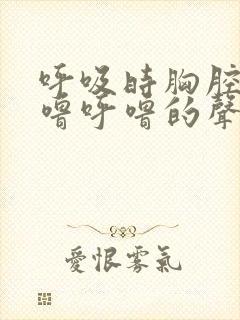 呼吸時胸腔
嚕呼嚕的聲
愛恨雾氣